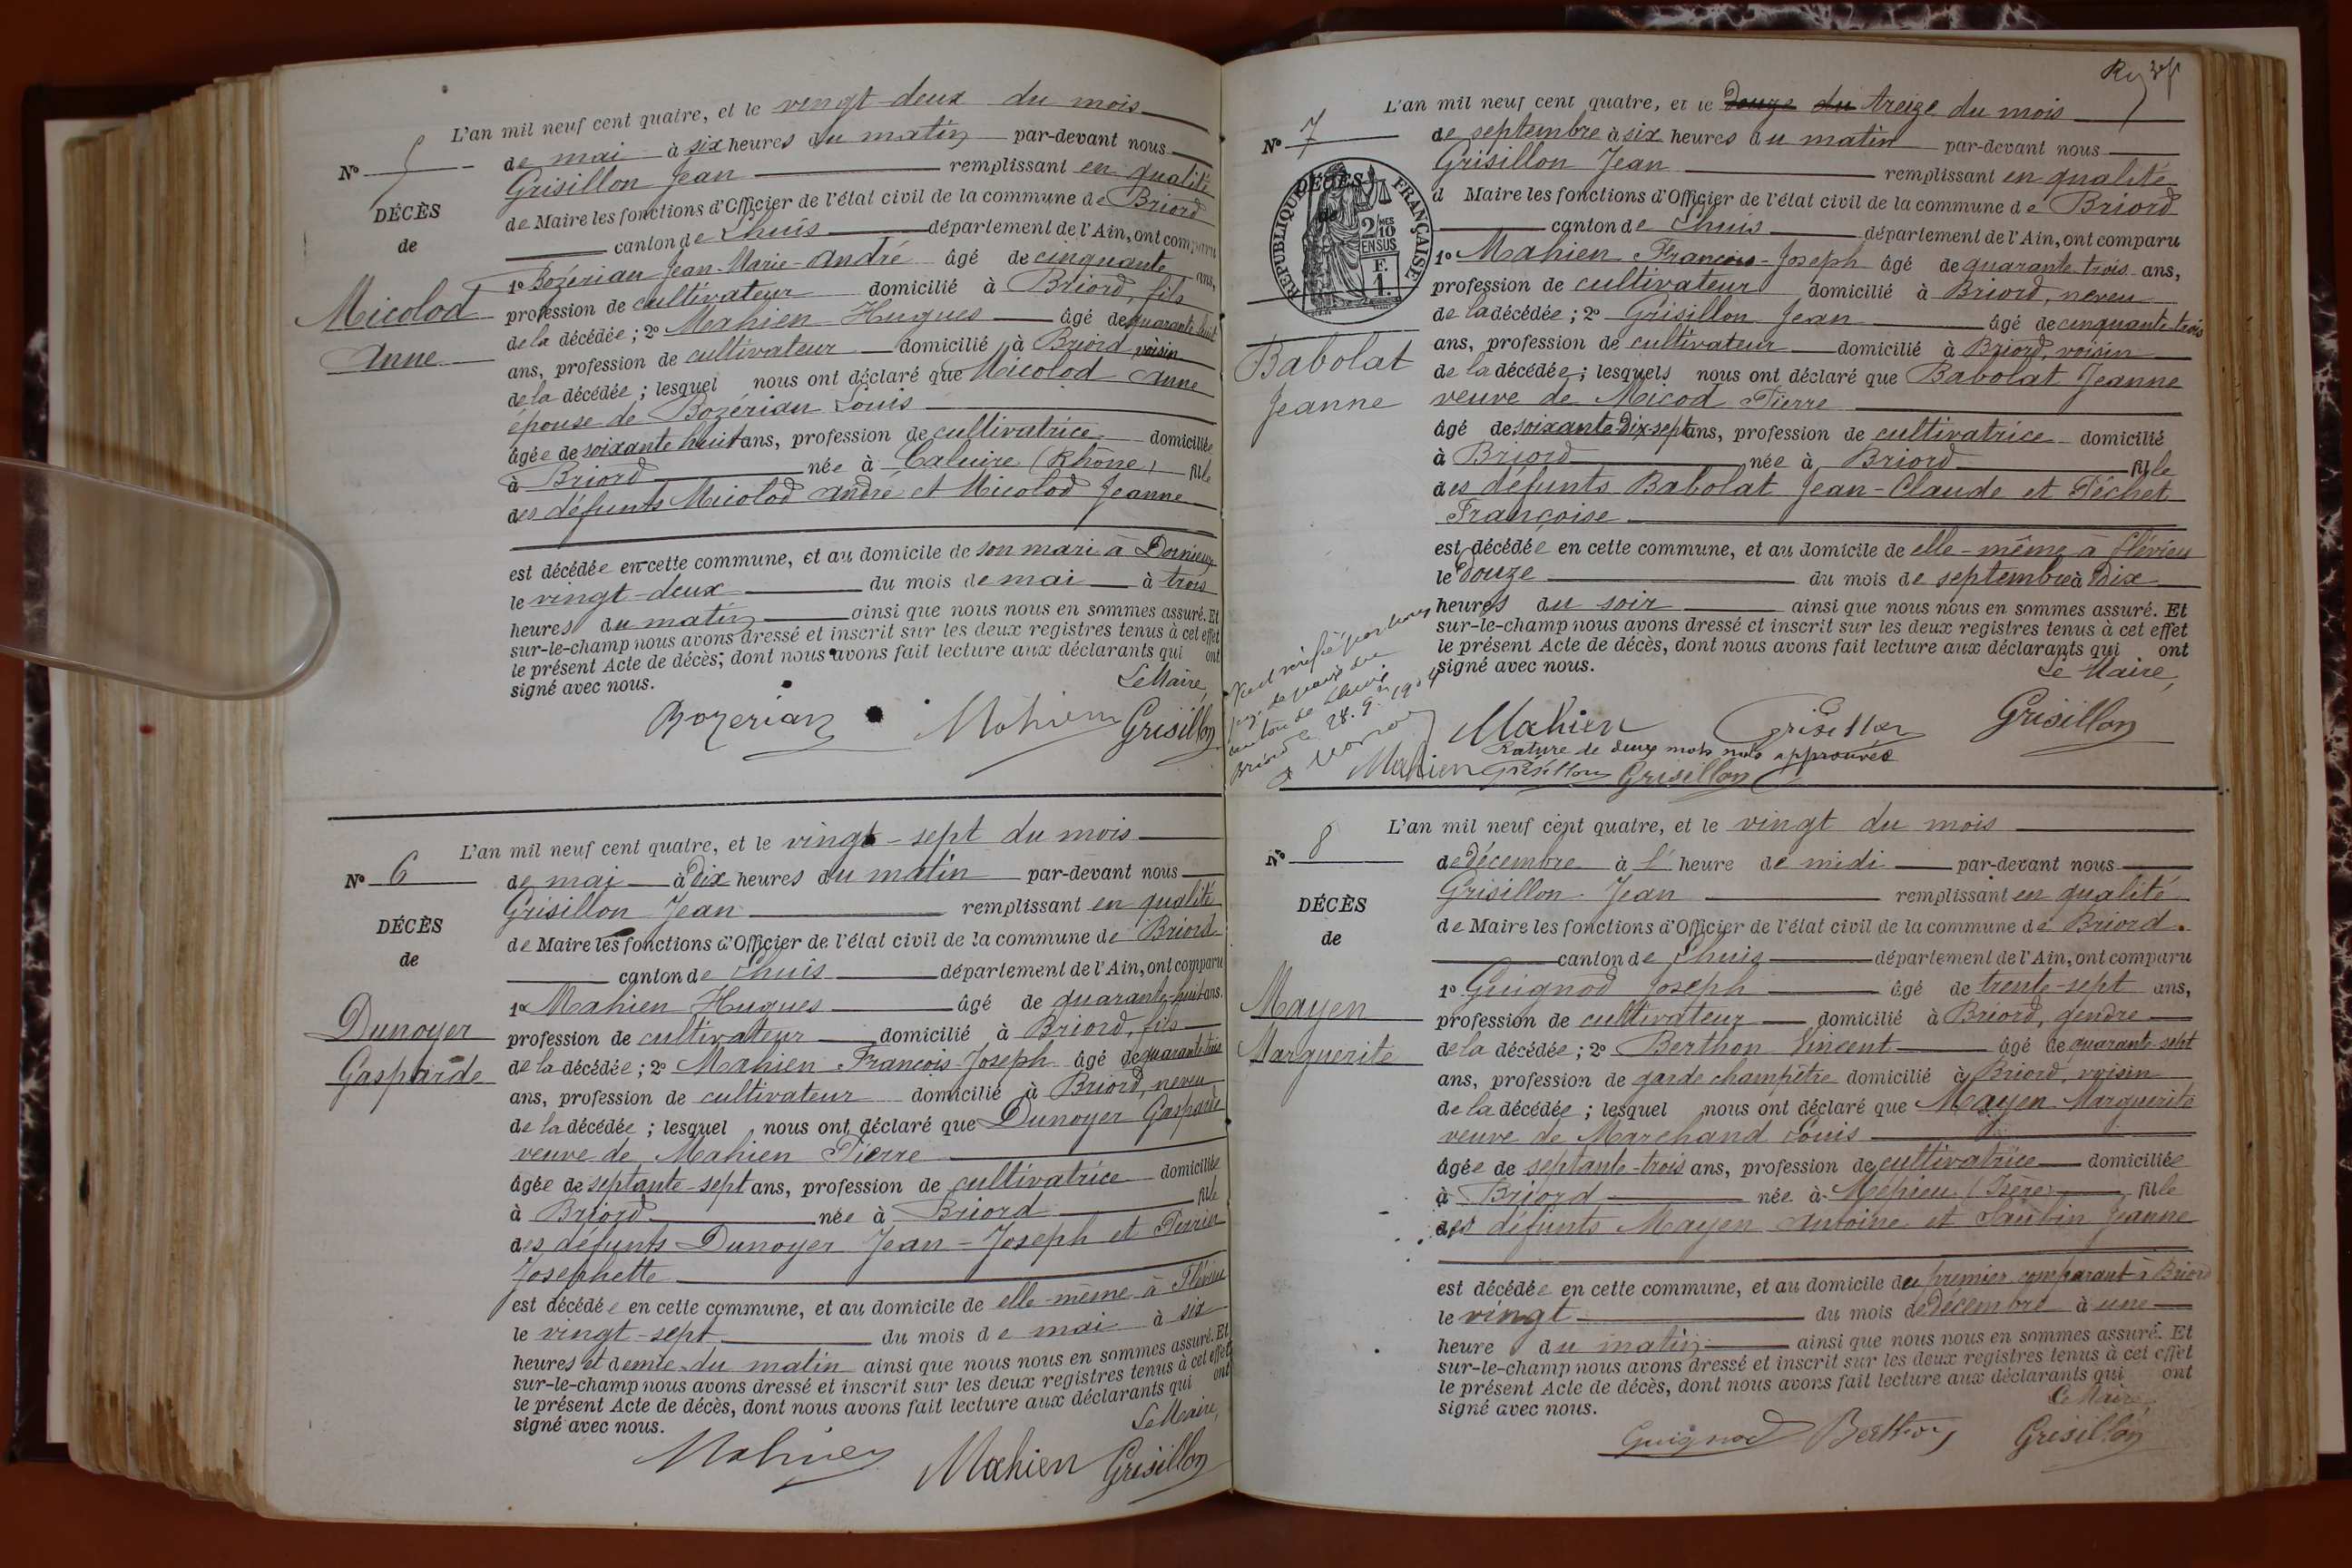 L'an mil neuf cent quatre, et le vingt-deux du mois
N° 5
de mai à six heures du matin par-devant nous
Grisillon Jean remplissant en qualité
DÉCÈS
de Maire les fonctions d'Officier de l'état civil de la commune de Briord
de
canton de Lhuis département de l'Ain, ont comparu
1° Bozérian Jean-Marie-André âgé de cinquante ans,
Micolod
profession de cultivateur domicilié à Briord, fils
de la décédée ; 2° Mahien Hugues âgé de quarante huit
Anne
ans, profession de cultivateur domicilié à Briord voisin
de la décédée ; lesquel nous ont déclaré que Micolod Anne
épouse de Bozérian Louis
âgée de soixante huit ans, profession de cultivatrice domiciliée
à Briord née à Caluire (Rhône) fille
des défunts Micolod André et Micolod Jeanne
est décédée en cette commune, et au domicile de son mari à Dornieux
le vingt-deux du mois de mai à trois
heures du matin ainsi que nous nous en sommes assuré. Et
sur-le-champ nous avons dressé et inscrit sur les deux registres tenus à cet effet
le présent Acte de décès, dont nous avons fait lecture aux déclarants qui ont
signé avec nous.
Le Maire,
Bozerian Mahien Grisillon
L'an mil neuf cent quatre, et le vingt-sept du mois
N° 6
de mai à dix heures du matin par-devant nous
Grisillon Jean remplissant en qualité
DÉCÈS
de Maire les fonctions d'Officier de l'état civil de la commune de Briord
de
canton de Lhuis département de l'Ain, ont comparu
1° Mahien Hugues âgé de quarante-huit ans.
Dunoyer
profession de cultivateur domicilié à Briord, fils
Gasparde
de la décédée ; 2° Mahien François-Joseph âgé de quarante trois
ans, profession de cultivateur domicilié à Briord, neveu
de la décédée ; lesquel nous ont déclaré que Dunoyer Gasparde
veuve de Mahien Pierre
âgée de septante-sept ans, profession de cultivatrice domiciliée
à Briord née à Briord fille
des défunts Dunoyer Jean-Joseph et Perrin
Josephette
est décédée en cette commune, et au domicile de elle-même à Flévieu
le vingt-sept du mois de mai à six
heures et demie du matin ainsi que nous nous en sommes assuré. Et
sur-le-champ nous avons dressé et inscrit sur les deux registres tenus à cet effet
le présent Acte de décès, dont nous avons fait lecture aux déclarants qui ont
signé avec nous.
Le Maire,
Mahien Mahien Grisillon
L'an mil neuf cent quatre, et le douze du treize du mois
N° 7
de septembre à six heures du matin par-devant nous
Grisillon Jean remplissant en qualité
DÉCÈS
de
RÉPUBLIQUE FRANÇAISE
2/10 MES
EN SUS
F.
1.
d Maire les fonctions d'Officier de l'état civil de la commune de Briord
canton de Lhuis département de l'Ain, ont comparu
1° Mahien François-Joseph âgé de quarante trois ans,
profession de cultivateur domicilié à Briord, neveu
de la décédée ; 2° Grisillon Jean âgé de cinquante trois
ans, profession de cultivateur domicilié à Briord, voisin
Babolat
de la décédée ; lesquels nous ont déclaré que Babolat Jeanne
Jeanne
veuve de Micod Pierre
âgé de soixante-dix-sept ans, profession de cultivatrice domicilié
à Briord née à Briord fille
des défunts Babolat Jean-Claude et Péchet
Françoise
est décédée en cette commune, et au domicile de elle-même à Flévieu
le douze du mois de septembre à dix
heures du soir ainsi que nous nous en sommes assuré. Et
sur-le-champ nous avons dressé et inscrit sur les deux registres tenus à cet effet
le présent Acte de décès, dont nous avons fait lecture aux déclarants qui ont
signé avec nous.
Le Maire,
Vu et vérifié par nous
juge de paix du
canton de Lhuis
Briord le 28.9.1904
Mahien Grisillon Grisillon
Rature de deux mots nuls approuvée
Mahien Grisillon Grisillon
L'an mil neuf cent quatre, et le vingt du mois
N° 8
de décembre à l' heure de midi par-devant nous
Grisillon Jean remplissant en qualité
DÉCÈS
de Maire les fonctions d'Officier de l'état civil de la commune de Briord.
de
canton de Lhuis département de l'Ain, ont comparu
1° Guignod Joseph âgé de trente-sept ans,
Mayen
profession de cultivateur domicilié à Briord, gendre
Marguerite
de la décédée ; 2° Berthon Vincent âgé de quarante-sept
ans, profession de garde champêtre domicilié à Briord, voisin
de la décédée ; lesquel nous ont déclaré que Mayen Marguerite
veuve de Marchand Louis
âgée de septante-trois ans, profession de cultivatrice domiciliée
à Briord née à Mépieu (Isère) fille
des défunts Mayen Antoine et Saubin Jeanne
est décédée en cette commune, et au domicile du premier comparant à Briord
le vingt du mois de décembre à une
heure du matin ainsi que nous nous en sommes assuré. Et
sur-le-champ nous avons dressé et inscrit sur les deux registres tenus à cet effet
le présent Acte de décès, dont nous avons fait lecture aux déclarants qui ont
signé avec nous.
Le Maire,
Guignod Berthon Grisillon